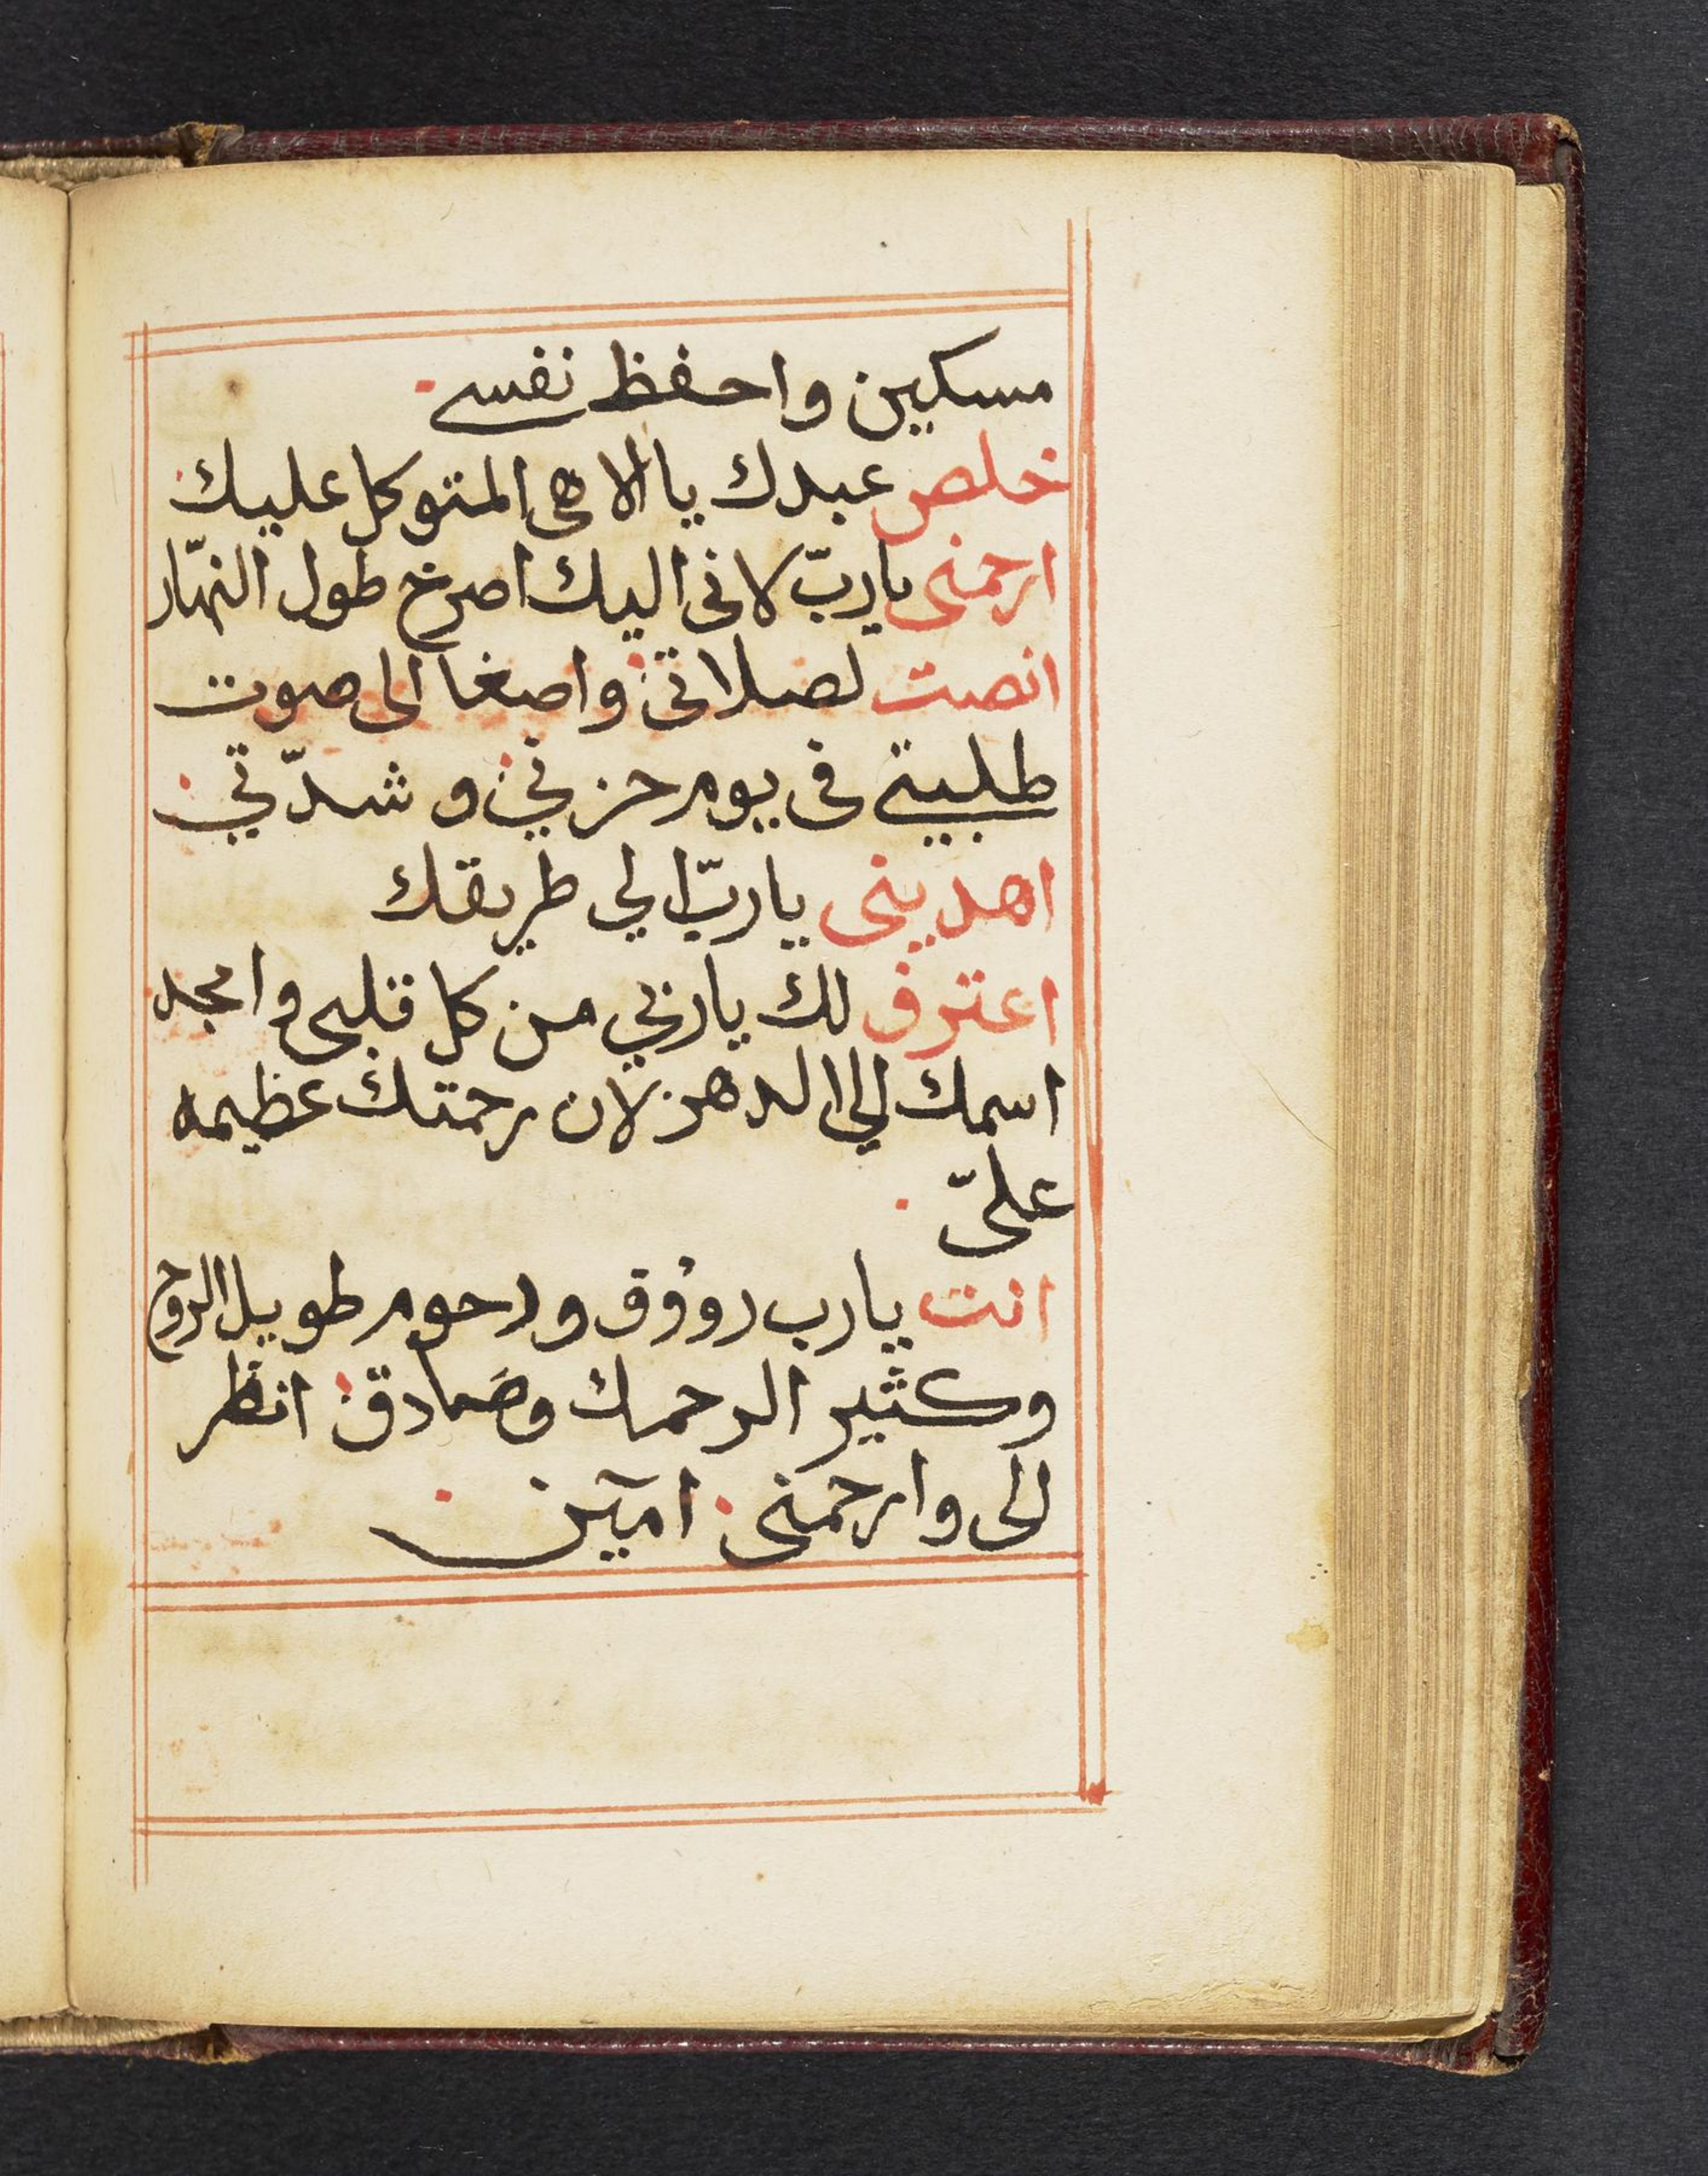 مسكين واحفظ نفسي
خلص عبدك يا الاهى المتوكل عليك
ارحمنى يا ربّ لانى اليك اصرخ طول النهّار
انصت لصلاتى واصغا الى صوت
طلبيتي فى يوم حزني و شدّتي
اهدينى ياربّ الي طريقك
اعترف لك ياربي من كل قلبى وامجد
اسمك الي الدهر لان رحمتك عظيمه
علىّ
انت يارب رووف ورحوم طويل الروح
وكثير الرحمه وصادق انظر
الى وارحمنى امين